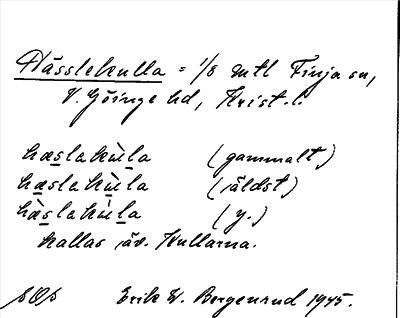 Hässlekulla = 1/8 mtl Finja sn,
V. Göinge hd, Krist. l.
hæslakùla (gammalt)
hæslakùla (äldst)
hæ̀slakùla (y.)
Kallas äv. Kullarna.
Erik W. Bergenrud 1945.